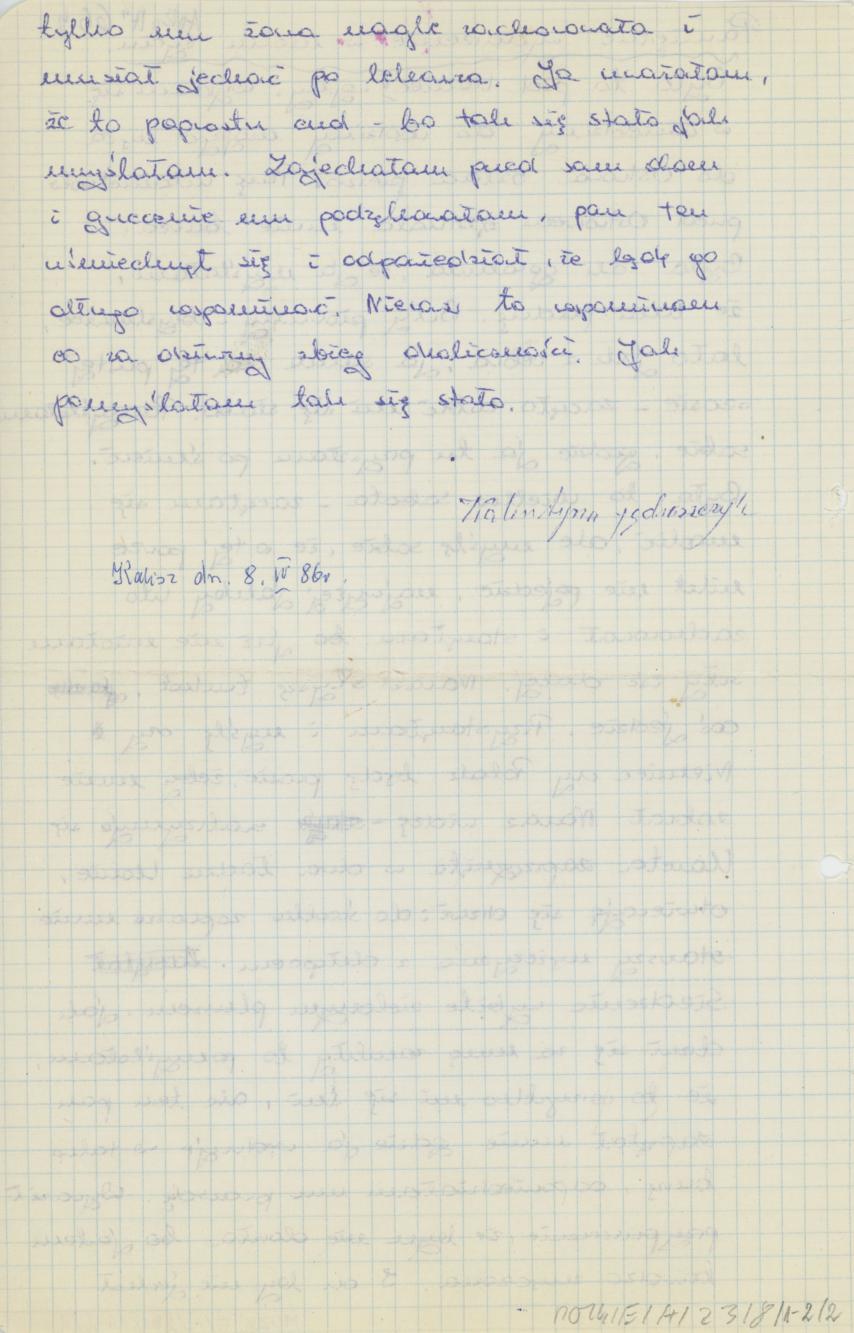 tylko mu żona nagle zachorowała i
musiał jechać po lekarza. Ja uważałam,
że to poprostu cud - bo tak się stało jak
myślałam. Zajechałam pred sam dom
i grzecznie mu podziękowałam, pan ten
uśmiechnął się i odpowiedział, że będę go
długo wspominać. Nieraz to wspominam
co za dziwny zbieg okoliczności. Jak
pomyślałam tak się stało.
Kalisz dn. 8. IV 86r.